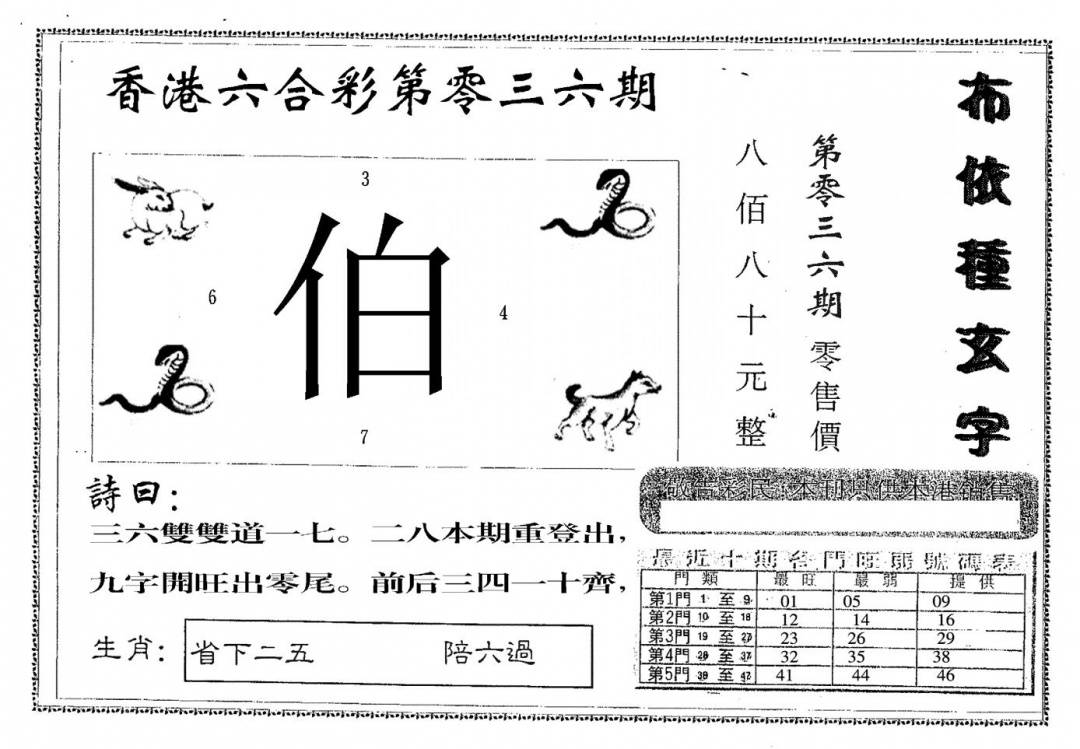 香港六合彩第零三六期
布依種玄字
第零三六期零售價
八佰八十元整
3
6
伯
4
7
詩曰：
三六雙雙道一七。二八本期重登出，
九字開旺出零尾。前后三四一十齊，
生肖： 省下二五 陪六過
敬告彩民：本刊只供本港銷售
最近十期各門旺弱號碼表
門類 最旺 最弱 提供
第1門 1 至 9 01 05 09
第2門 10 至 18 12 14 16
第3門 19 至 27 23 26 29
第4門 28 至 37 32 35 38
第5門 38 至 47 41 44 46